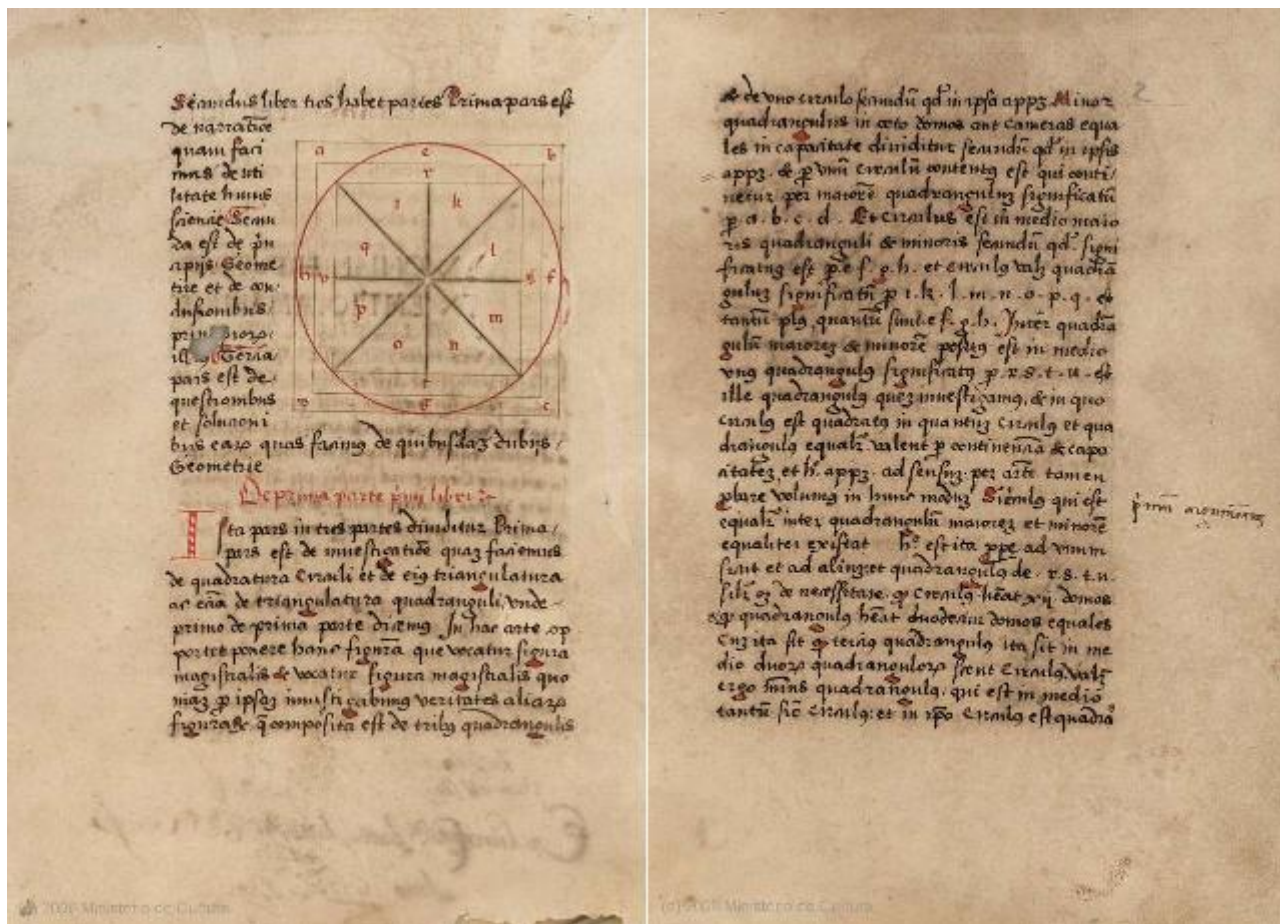 Secundus liber tres habet partes Prima pars est
de narratiõe
quam faci
mus de uti
litate huius
sciencie Secun
da est de prin
cipijs Geome
trie et de con
clusionibus
ill Tercia
pars est de
questionibus
et solucioni
bus earum quas facimus de quibusdam dubijs
Geometrie
De prima parte huius libri
Ista pars in tres partes diuiditur Prima
pars est de inuestigatiõe quam faciemus
de quadratura circuli et de eius triangulatura
ac eciã de triangulatura quadranguli, vnde
primo de prima parte dicemus In hac arte op
portet ponere hanc figurã que vocatur figura
magistralis & vocatur figura magistralis quo
niam per ipsam inuestigabimus veritates aliarum
figuraru & composita est de tribus quadrangulis
a e b
r
i k
q l
h v s f
p m
o n
t
d g c
2
& de vno circulo secundũ qd in ipsa appet Minor
quadrangulus in octo domos aut cameras equa
les in capacitate diuiditur secundũ qd in ipsis
appet & per vnũ circulũ contentus est qui conti
netur per maiorẽ quadrangulum significatũ
per a . b . c . d . Et circulus est in medio maio
ris quadranguli & minoris secundũ qd signi
ficatus est per e f g h . et circulus valet quadrã
gulum significatũ per i . k . l . m . n . o . p . q . et
tantũ plus quantũ sunt e f g h . Inter quadrã
gulũ maiorem & minorẽ positus est in medio
vnus quadrangulus significatus per r . s . t . u . et
ille quadrangulus quem inuestigamus, & in quo
circulus est quadratus in quantum circulus et qua
drangulus equaliter valent per continenciã & capa
citatem, et hoc appet ad sensum per artẽ tamen
probare volumus in hunc modum Circulus qui est
equaliter inter quadrangulũ maiorem et minorẽ
equaliter existat hoc est ita prope ad vnum
sicut et ad alium et quadrangulus de . r . s . t . u .
similiter de necessitate circulus habeat xij domos
& quadrangulus habeat duodecim domos equales
Cum ita sit tercius quadrangulus ita sit in me
dio duorum quadrangulorum sicut circulus, valet
ergo quadrangulus, qui est in medio
tantũ sicut circulus et in ipso circulus est quadra
(c) 2006 Ministerio de Cultura
(c) 2006 Ministerio de Cultura